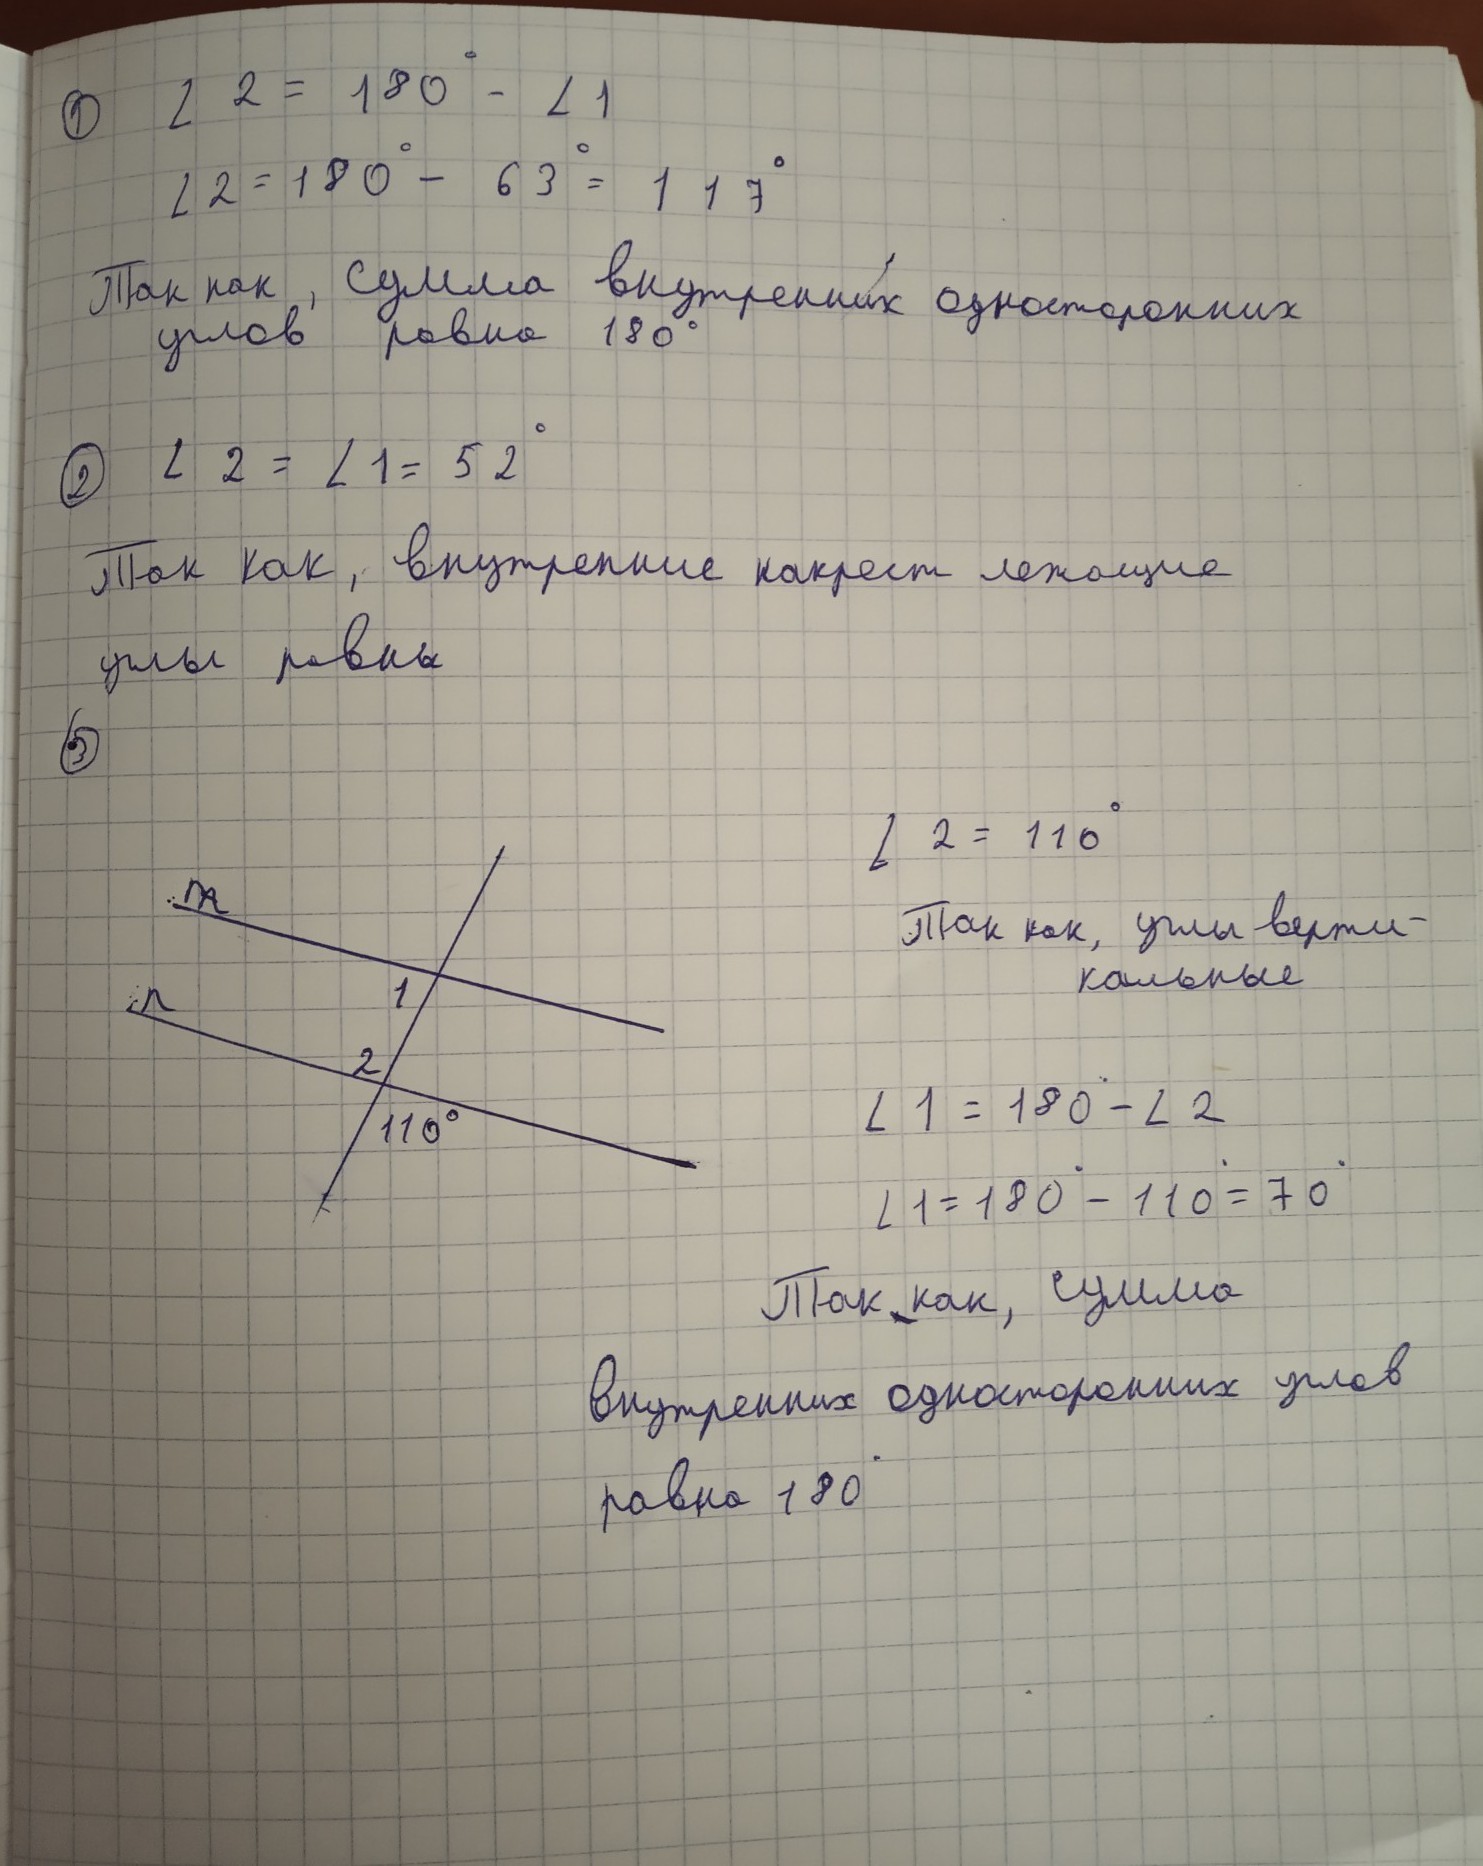 ① ∠2 = 180° - ∠1
∠2 = 180° - 63° = 117°
Так как, сумма внутренних односторонних
углов равна 180°
② ∠2 = ∠1 = 52°
Так как, внутренние накрест лежащие
углы равны
③
∠2 = 110°
m
Так как, углы верти-
кальные
1
n
2
110°
∠1 = 180° - ∠2
∠1 = 180° - 110° = 70°
Так как, сумма
внутренних односторонних углов
равна 180°